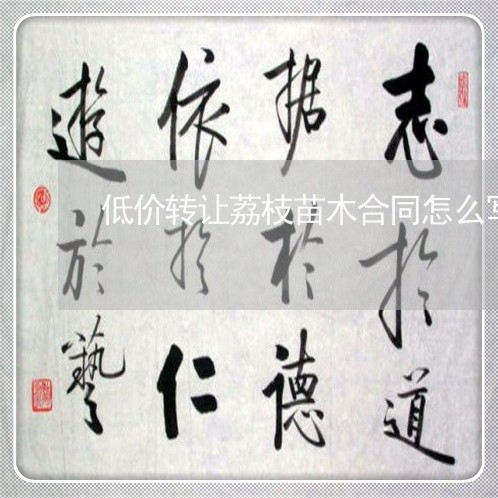 志於道
据於德
依於仁
遊於藝
低价转让荔枝苗木合同怎么写